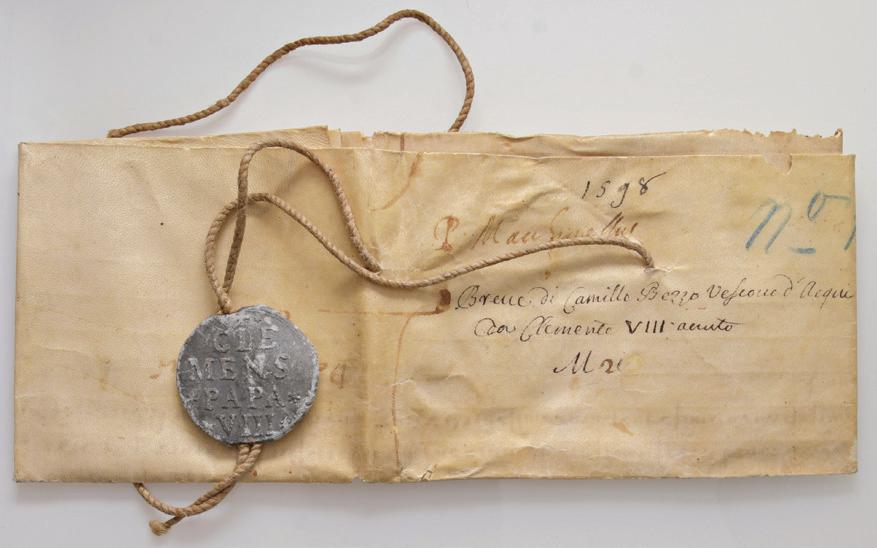 CLE
MENS
PAPA
VIII
1598
P.
Nº 1
Breue di Camillo Bezzo Vescouo d'Acqui
da Clemente VIII auuto